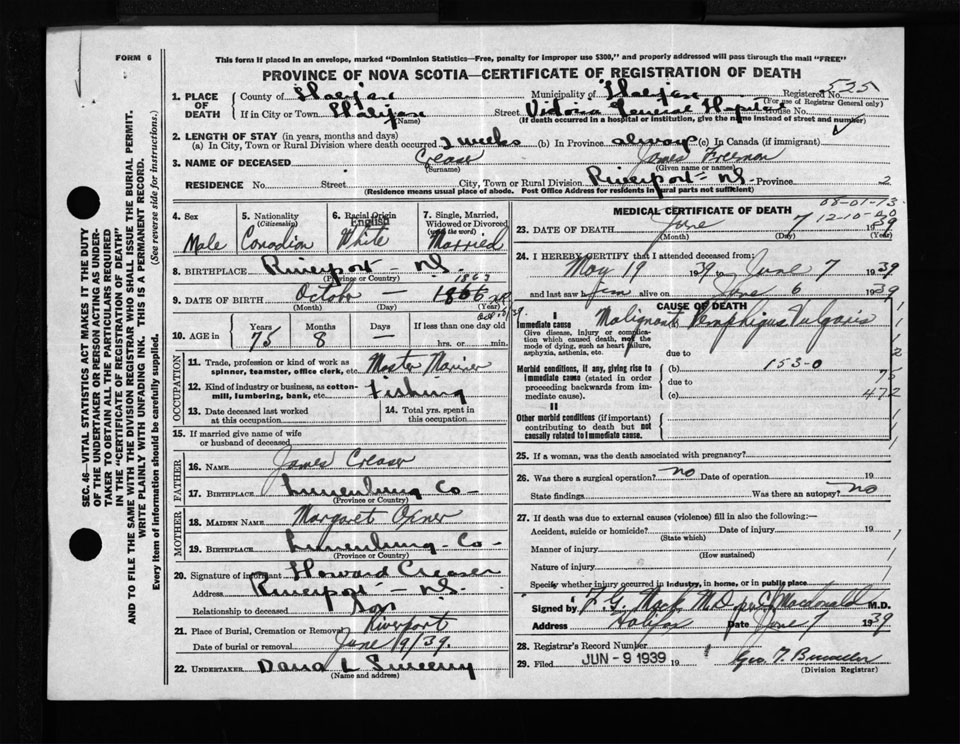 FORM 6
This form if placed in an envelope, marked "Dominion Statistics—Free, penalty for improper use $300," and properly addressed will pass through the mail "FREE"
PROVINCE OF NOVA SCOTIA—CERTIFICATE OF REGISTRATION OF DEATH
525
1. PLACE OF DEATH County of Halifax Municipality of Halifax Registered No.
(For use of Registrar General only)
If in City or Town Halifax Street Victoria General Hospital House No.
(Name) (If death occurred in a hospital or institution, give the name instead of street and number)
2. LENGTH OF STAY (in years, months and days)
(a) In City, Town or Rural Division where death occurred 2 weeks (b) In Province always (c) In Canada (if immigrant)
3. NAME OF DECEASED Creaser James Freeman
(Surname) (Given name or names)
RESIDENCE No. Street City, Town or Rural Division Riverport - N.S. Province 2
(Residence means usual place of abode. Post Office Address for residents in rural parts not sufficient)
4. Sex Male
5. Nationality (Citizenship) Canadian
6. Racial Origin English White
7. Single, Married, Widowed or Divorced (write the word) Married
8. BIRTHPLACE Riverport - N.S.
(Province or Country)
1863
9. DATE OF BIRTH October — 1866
(Month) (Day) (Year)
10. AGE in Years 75 Months 8 Days — If less than one day old
hrs. or min.
OCCUPATION
11. Trade, profession or kind of work as spinner, teamster, office clerk, etc. Master Mariner
12. Kind of industry or business, as cotton-mill, lumbering, bank, etc. Fishing
13. Date deceased last worked at this occupation
14. Total yrs. spent in this occupation
15. If married give name of wife or husband of deceased
FATHER
16. NAME James Creaser
17. BIRTHPLACE Lunenburg Co
(Province or Country)
MOTHER
18. MAIDEN NAME Margaret Oxner
19. BIRTHPLACE Lunenburg - Co -
(Province or Country)
20. Signature of informant Howard Creaser
Address Riverport - N.S.
Relationship to deceased Son
21. Place of Burial, Cremation or Removal Riverport
Date of burial or removal June 9/39.
22. UNDERTAKER Dana L Sweeny
(Name and address)
08-01-73
MEDICAL CERTIFICATE OF DEATH 12-10-00
23. DATE OF DEATH June 7 1939
(Month) (Day) (Year)
24. I HEREBY CERTIFY that I attended deceased from:
May 19 1939 to June 7 1939
and last saw him alive on June 6 1939
CAUSE OF DEATH
I
Immediate cause Malignant Pemphigus Vulgaris
Give disease, injury or complication which caused death, not the mode of dying, such as heart failure, asphyxia, asthenia, etc.
due to
Morbid conditions, if any, giving rise to immediate cause (stated in order proceeding backwards from immediate cause).
(b) 153-0
due to 75
(c) 472
II
Other morbid conditions (if important) contributing to death but not causally related to immediate cause.
25. If a woman, was the death associated with pregnancy?
26. Was there a surgical operation? no Date of operation 19
State findings Was there an autopsy? no
27. If death was due to external causes (violence) fill in also the following:—
Accident, suicide or homicide? Date of injury 19
(State which)
Manner of injury
(How sustained)
Nature of injury
Specify whether injury occurred in industry, in home, or in public place
Signed by F.G. Mack M.D. per C. Macdonald M.D.
Address Halifax Date June 7 1939
28. Registrar's Record Number
29. Filed JUN - 9 1939 19
(Division Registrar)
SEC. 46—VITAL STATISTICS ACT MAKES IT THE DUTY
OF THE UNDERTAKER OR PERSON ACTING AS UNDERTAKER
TAKEN TO OBTAIN ALL THE PARTICULARS REQUIRED
IN THE "CERTIFICATE OF REGISTRATION OF DEATH"
AND TO FILE THE SAME WITH THE DIVISION REGISTRAR WHO SHALL ISSUE THE BURIAL PERMIT.
WRITE PLAINLY WITH UNFADING INK. THIS IS A PERMANENT RECORD.
Every item of information should be carefully supplied. (See reverse side for instructions.)